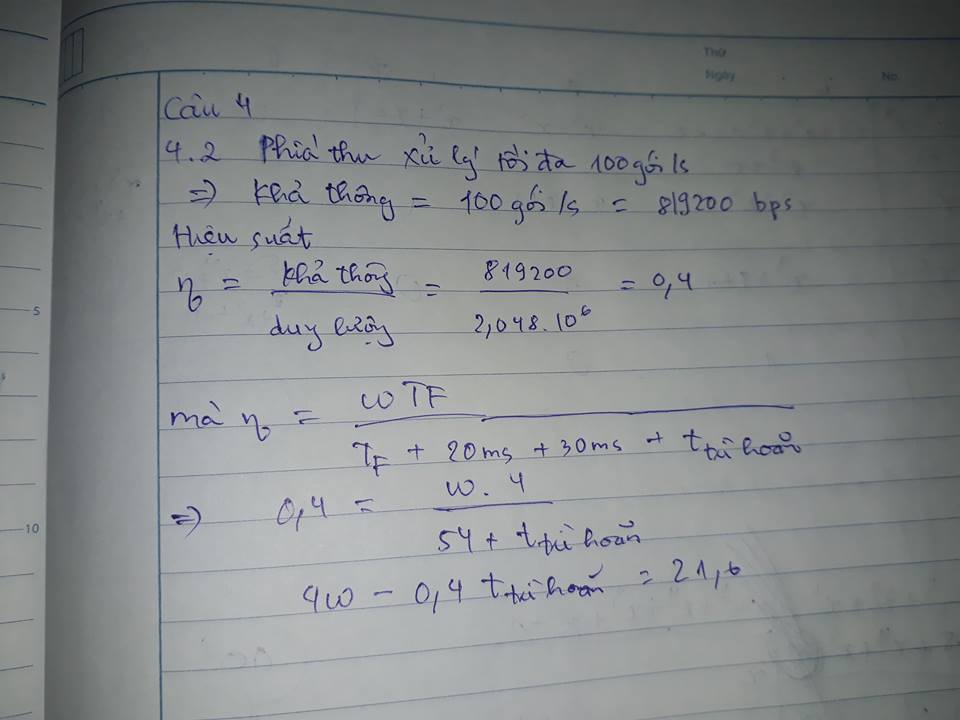 Thứ
Ngày No.
Câu 4
4.2 Phía thu xử lý tối đa 100 gói/s
=> Khả thông = 100 gói/s = 819200 bps
Hiệu suất
η = khả thông / duy lượng = 819200 / 2,048.10⁶ = 0,4
5
mà η = ωTF / (T_F + 20ms + 30ms + t trì hoãn)
=> 0,4 = ω.4 / (54 + t trì hoãn)
10
4ω - 0,4 t trì hoãn = 21,6